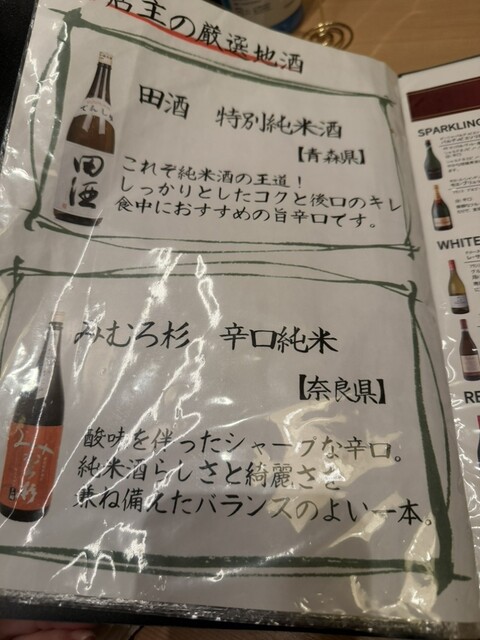 店主の厳選地酒
田酒 特別純米酒
【青森県】
これぞ純米酒の王道！
しっかりとしたコクと後口のキレ
食中におすすめの旨辛口です。
田酒
みむろ杉 辛口純米
【奈良県】
酸味を伴ったシャープな辛口。
純米酒らしさと綺麗さを
兼ね備えたバランスのよい一本。
SPARKLING
WHITE
RE